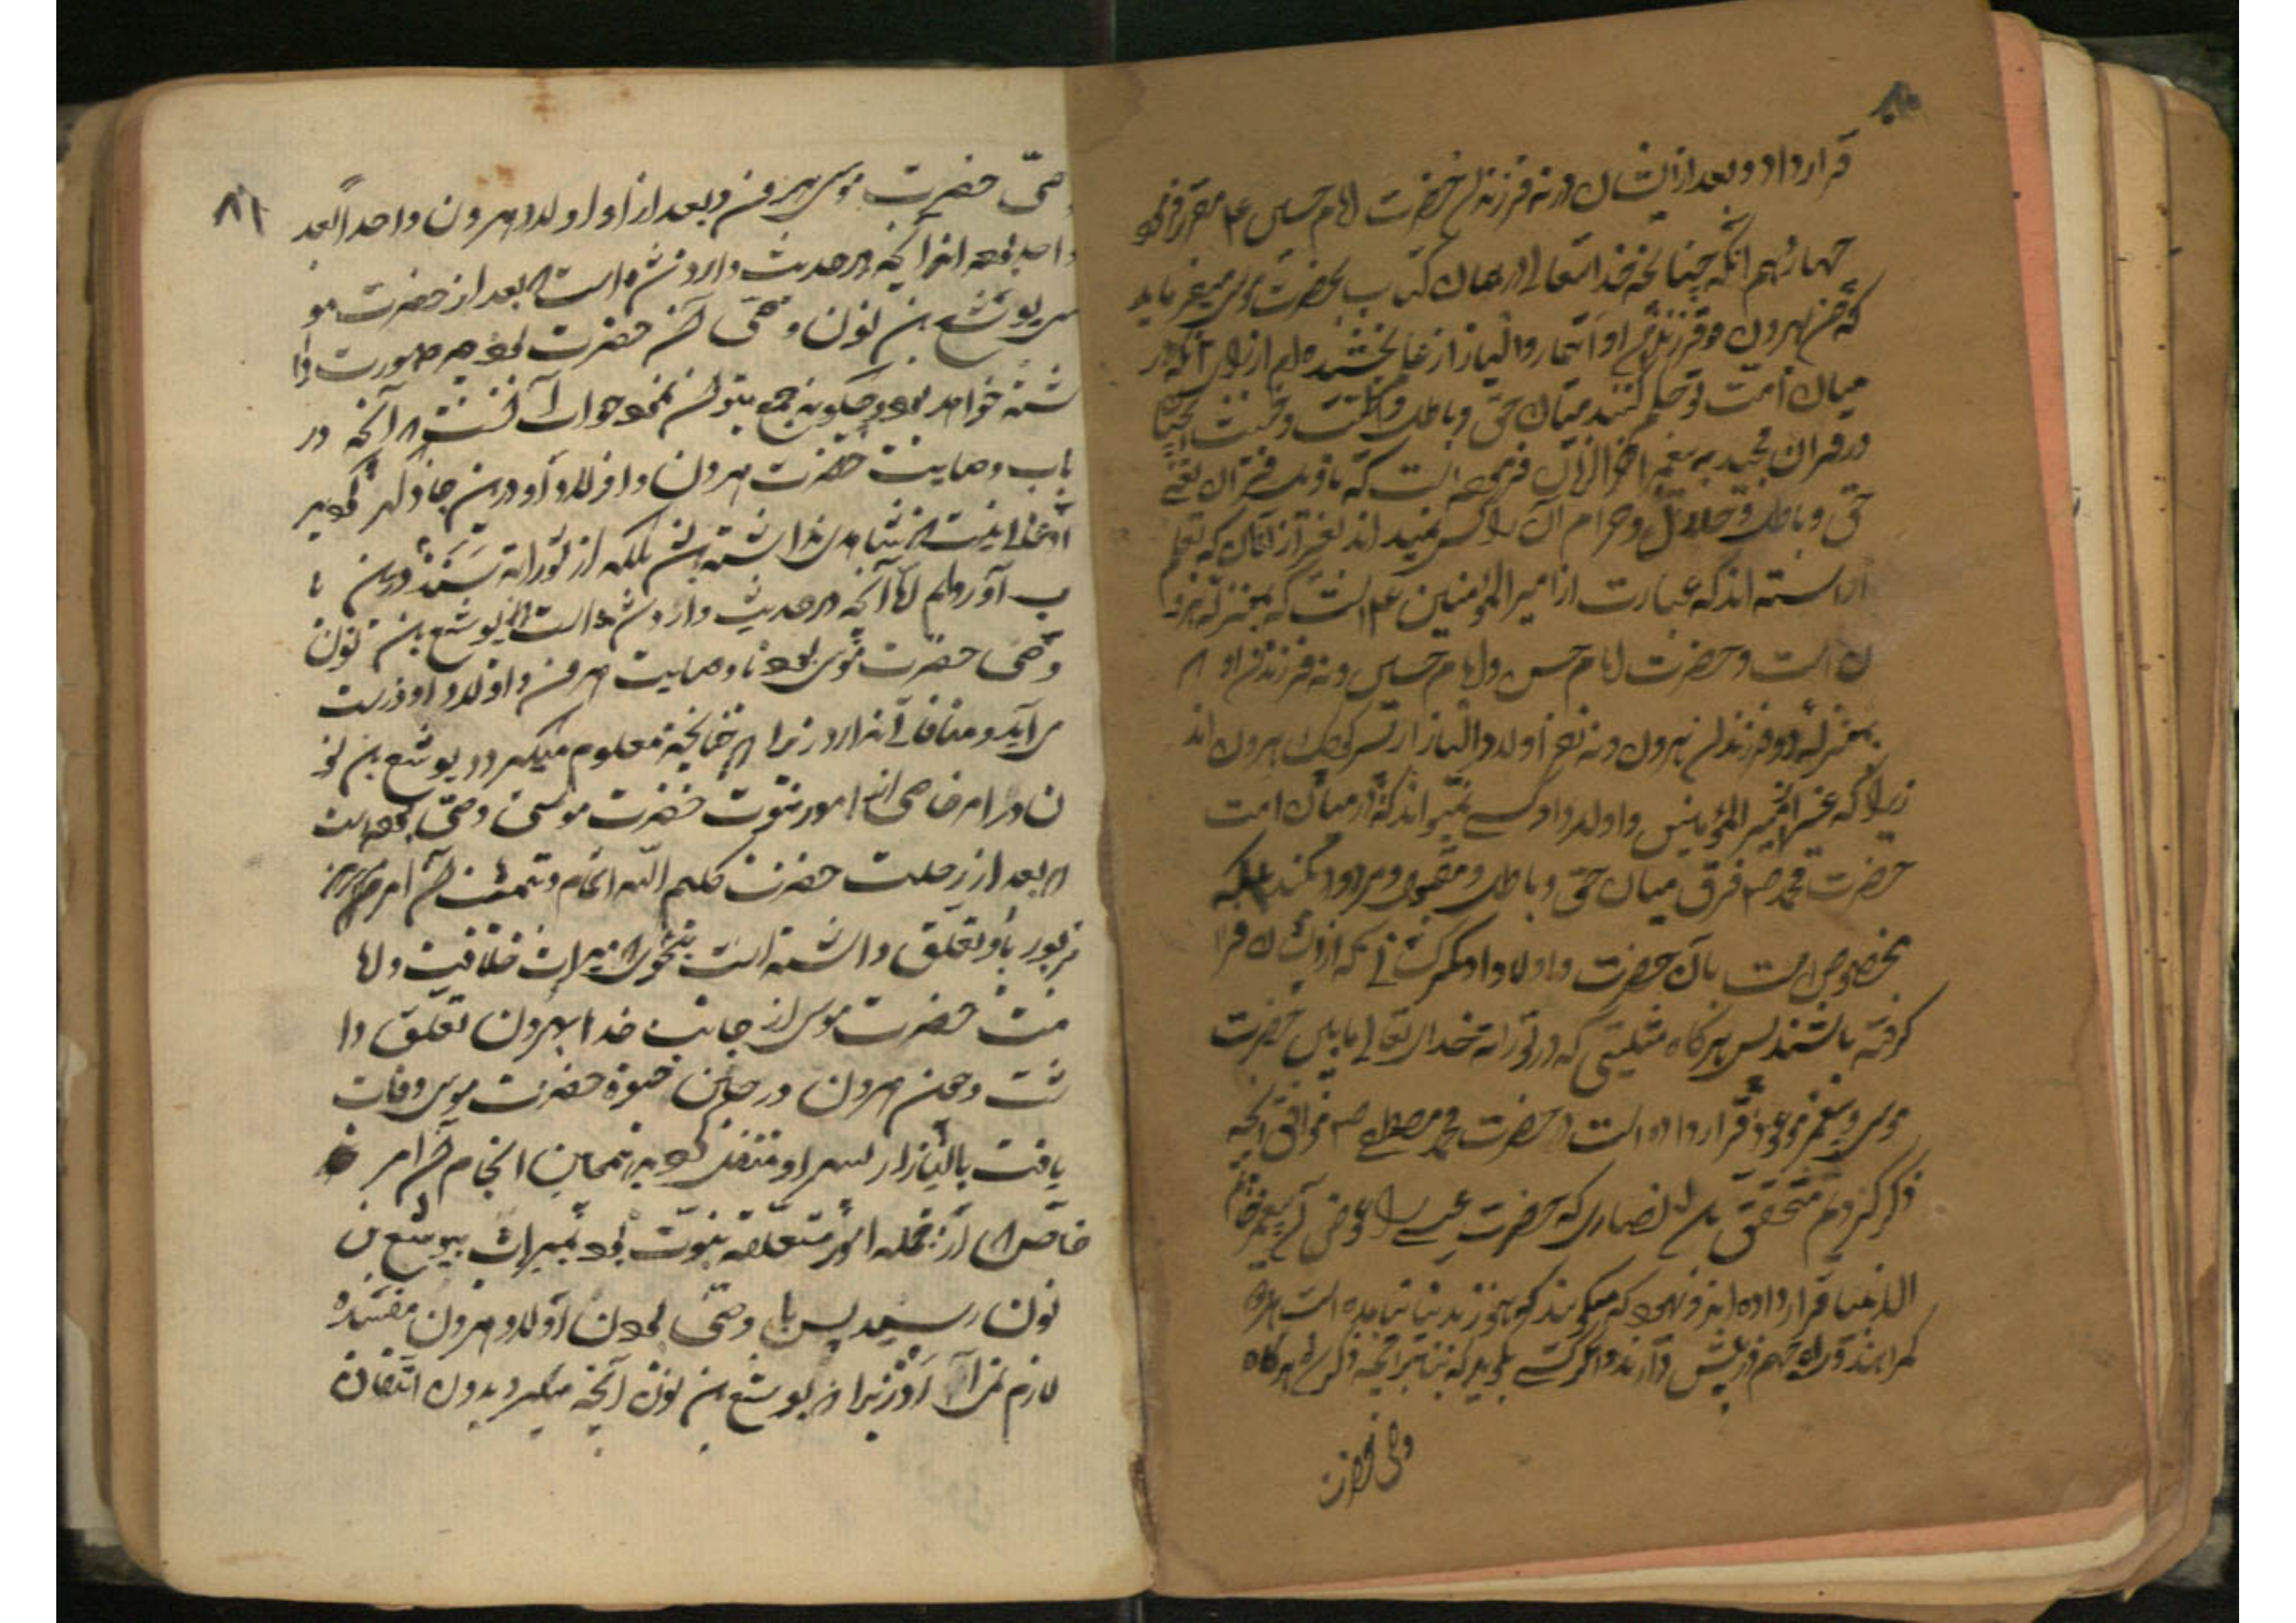 قرار داد و بعد از ایشان در نه فرزندان حضرت امام حسین ع م مقرر فرمود
چهارم انکه چنانچه خدا تعالی در همان کتاب بحضرت موسی میفرماید
که من بهرون و فرزندان او ایتمار والیازار عا بخشیده ام از برای انکه در
میان امت تو حکم کنند میان حق و باطل و
در قران مجید به پیغمبر اخر الزمان فرموده است که تاویل قران یعنی
حق و باطل و حلال و حرام آن را کسی نمیداند بغیر از آنان که بعلم
اراسته اند که عبارت از امیر المؤمنین ع م است که بمنزله هرو
ن است و حضرت امام حسن و امام حسین و نه فرزندان او که
بمنزله دو فرزندان هرون و نه نفر اولاد الیازار پسر کوچک هرون اند
زیرا که غیر امیر المؤمنین و اولاد او کسی نمیتواند که در میان امت
حضرت محمد ص م فرق میان حق و باطل و مقبول و مردود کند بلکه
مخصوص است بآن حضرت و اولاد او و مکر کسانی که از ایشان فرا
کرفته باشند پس هرکاه مثلیتی که در توراته خدای تعالی مابین حضرت
موسی و پیغمبر موعود قرار داده است در حضرت محمد مصطفی ص م موافق انچه
ذکر کردیم متحقق نصاری که حضرت عیسی را عوض آن پیغمبر خاتم
الانبیا قرار داده اند و یهود که میکویند که هنوز بدنیا نیامده است
کمراهند و راه جهنم در پیش دارند و اکر کسی بکوید که بنابر انچه ذکر شد هرکاه
وصی حضرت
۸۱
وصی حضرت موسی هرون و بعد از او اولاد هرون واحدا بعد
واحد بوده اند آنچه در حدیث وارد شده است که بعد از حضرت مو
سی یوشع بن نون وصی آن حضرت بود چه صورت دا
شته خواهد بود و چکونه جمع بتوان نمود جواب آن است که آنچه در
باب وصایت حضرت هرون و اولاد او درین جا ذکر
ادعائی نیست که شاهدی نداشته باشد بلکه از توراته سند درین با
ب آوردیم اما آنچه در حدیث وارد شده است که یوشع بن نون
وصی حضرت موسی بود با وصایت هرون و اولاد او درست
می آید و منافاتی ندارد زیرا که چنانچه معلوم میکردد یوشع بن نو
ن در امر خاصی از امور نبوت حضرت موسی وصی بوده است
که بعد از رحلت حضرت کلیم الله انجام و تمشیت آن امر
مزبور باو تعلق داشته است بنحوی که میراث خلافت و اما
مت حضرت موسی از جانب خدا بهرون تعلق دا
شت و چون هرون در حین حیوة حضرت موسی وفات
یافت بالیازار پسر او منتقل کردید همچنین انجام آن امر
خاص که از جمله امور متعلقه بنبوت بود بمیراث بیوشع بن
نون رسید پس با وصی بودن اولاد هرون مفسده
لازم نمی آید زیرا که یوشع بن نون آنچه میکرد بدون